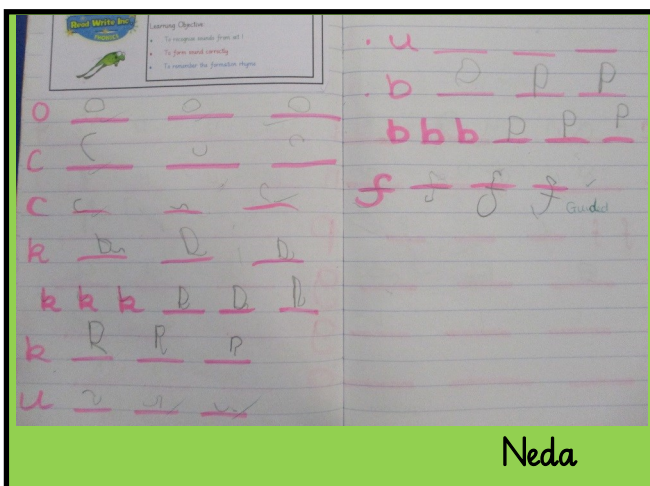 Read Write Inc.
PHONICS
Learning Objective:
To recognise sounds from set 1
To form sound correctly
To remember the formation rhyme
o o o o
c c
c c c
k
k k k
k R R R
u
u
b D p p
b b b p p p
f f f f
Guided
Neda